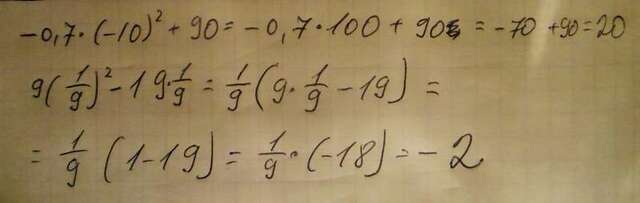 -0,7·(-10)² + 90 = -0,7·100 + 90 = -70 +90=20
9(1/9)² - 19·1/9 = 1/9 (9·1/9 - 19) =
= 1/9 (1-19) = 1/9·(-18) = -2